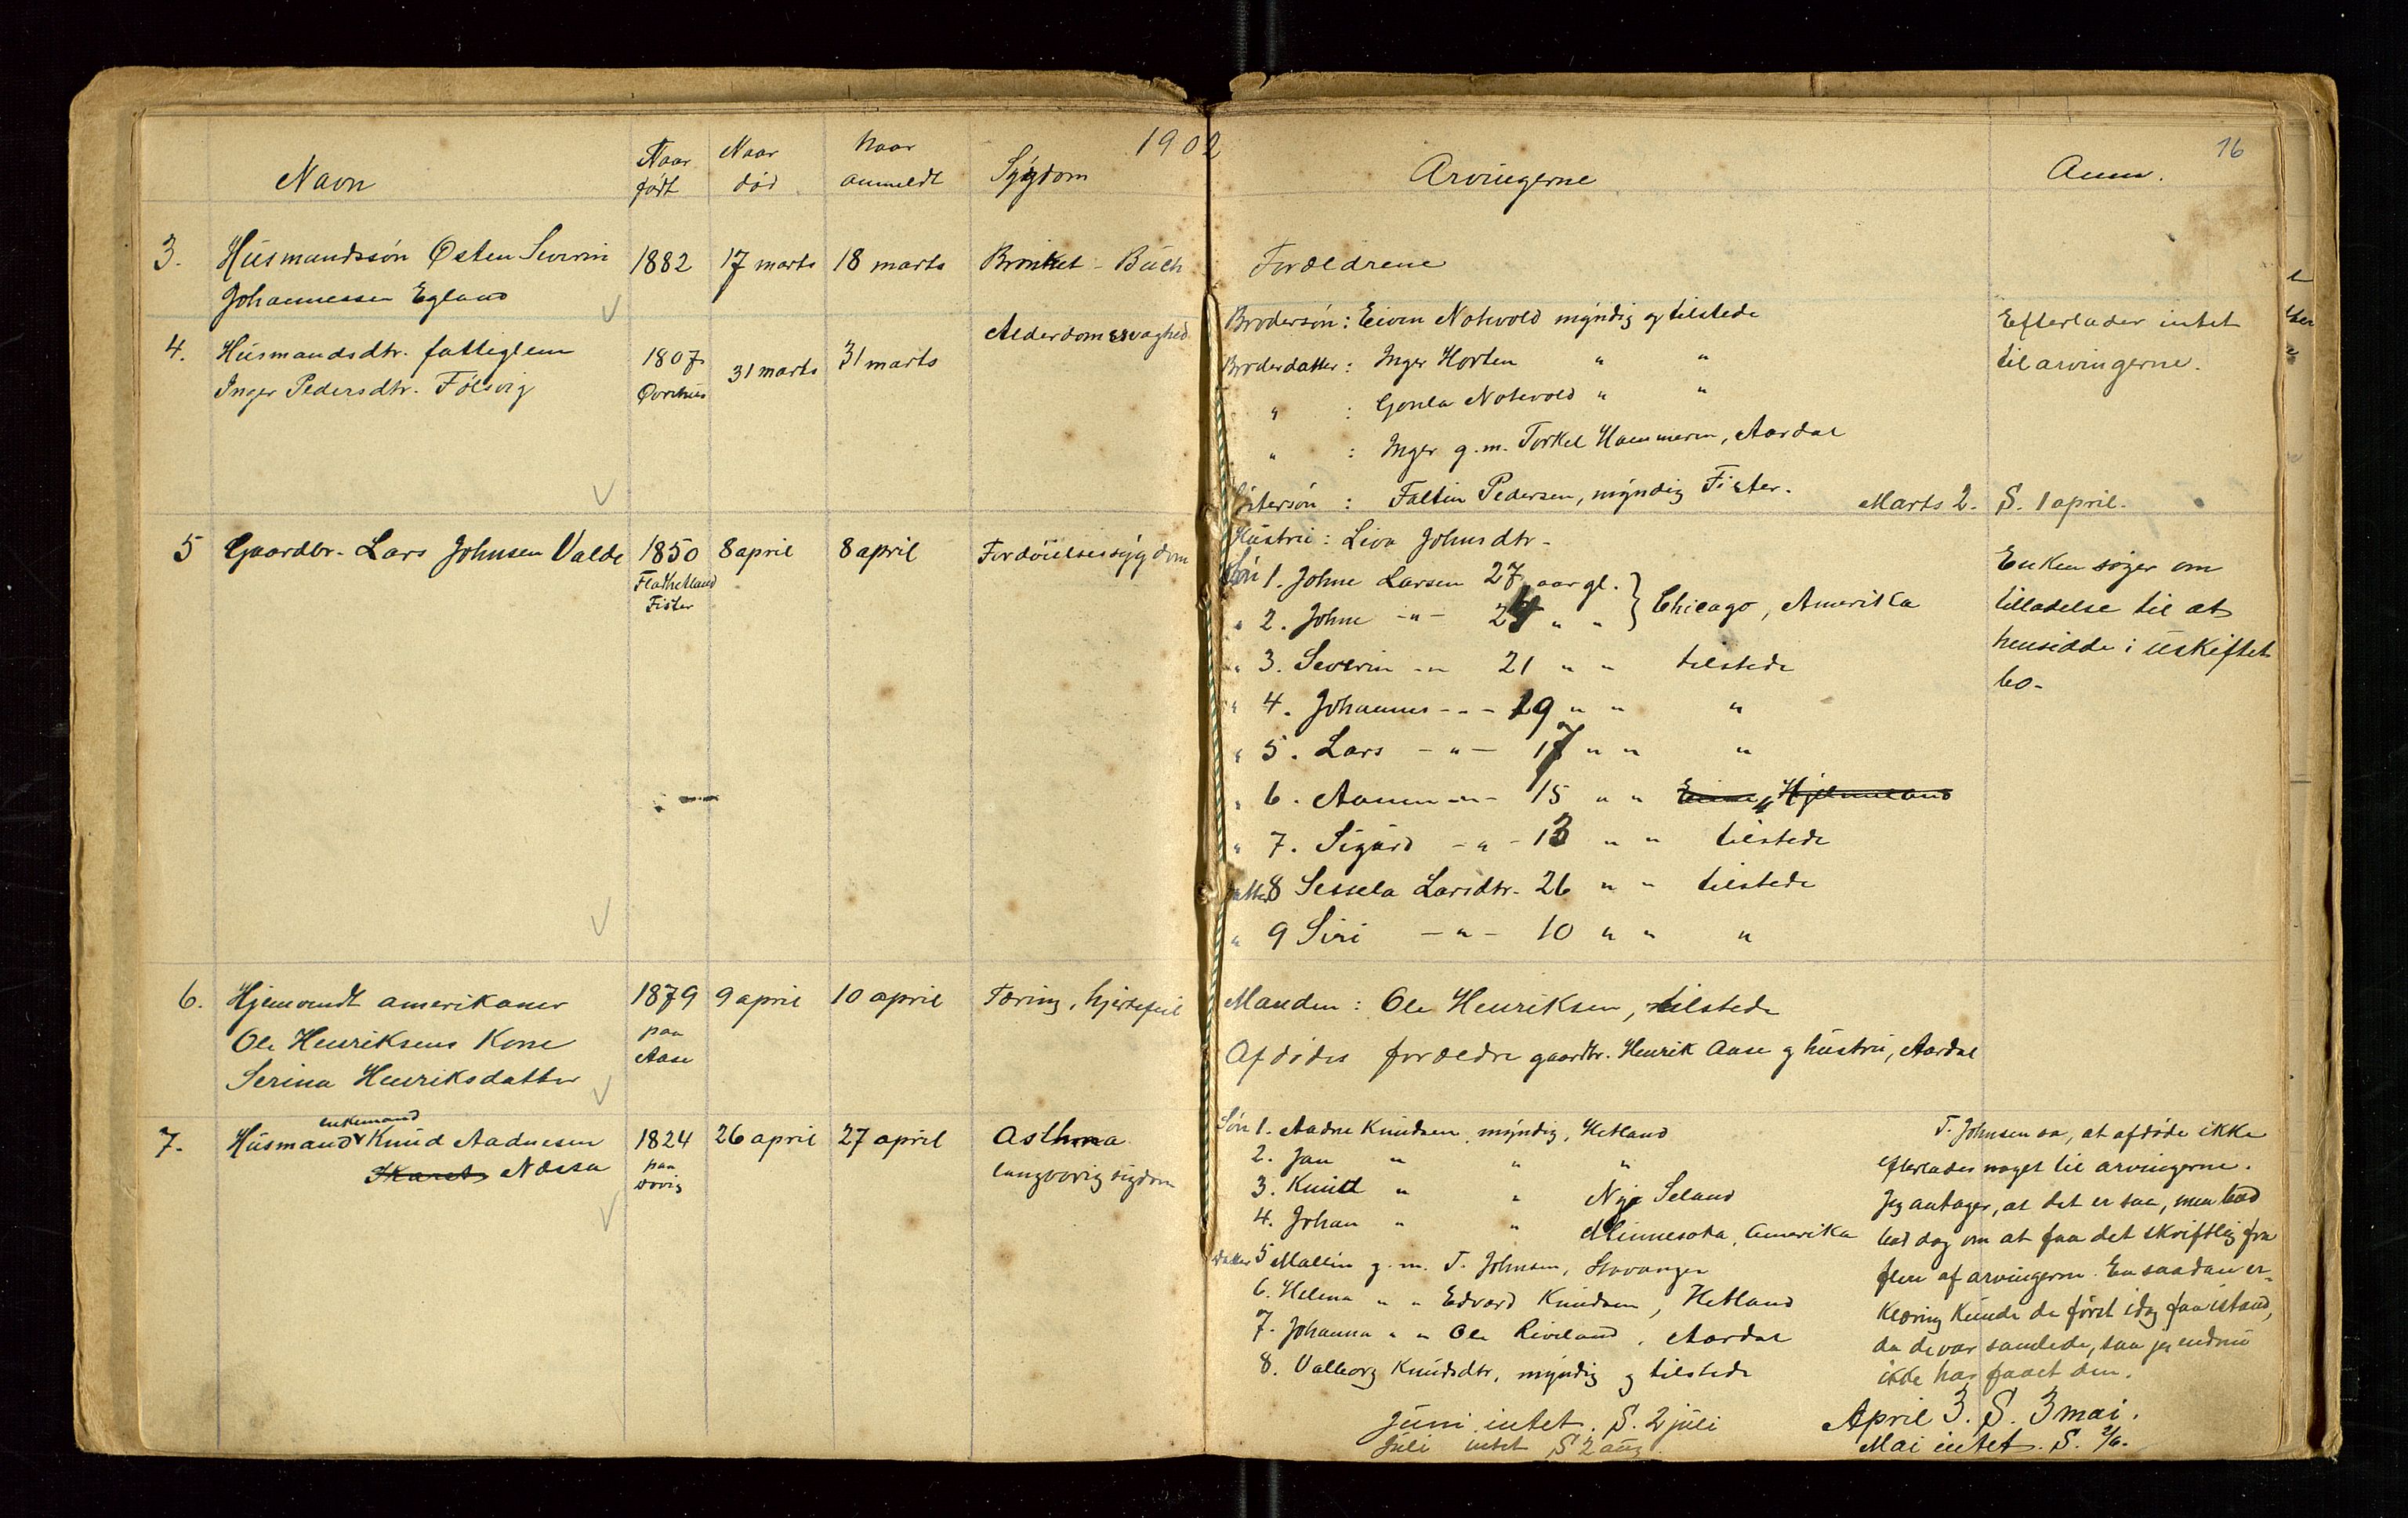 1902
16
Navn
Naar født
Naar død
Naar anmeldt
Sygdom
Arvingerne
Anm.
3. Husmandssøn Østen Severin
Johannessen Egland
1882
17 marts
18 marts
Bronket - Buch
Forældrene
4. Husmandsdtr. fattiglem
Inger Pedersdtr. Fölsvig
1807
31 marts
31 marts
Alderdomssvaghed
Brodersön: Eiven Notvold myndig og tilstede
Broderdatter: Inger Horten " "
" : Gonla Notevold " "
" : Inger g.m. Torkel Hammeren, Aardal
Søstersön : Faltin Pedersen, myndig Fister.
Efterlader intet
til arvingerne.
Marts 2. S. 1 april.
5 Gaardbr. Lars Johnsen Valde
1850
Fladhetland
Fister
8 april
8 april
Fordöielsessygdom
Hustru: Liva Johnsdtr.
Sön 1. Johne Larsen 27 aar gl.
" 2. Johne -"- 24 " " } Chicago, Amerika
" 3. Severin -"- 21 " " tilstede
" 4. Johannes -"- 19 " " "
" 5. Lars -"- 17 " " "
" 6. Aanen -"- 15 " " " Hjelmeland
" 7. Sigurd -"- 13 " " tilstede
Datter 8 Sessela Larsdtr. 26 " " tilstede
" 9 Siri -"- 10 " " "
Enken søger om
tilladelse til at
hensidde i uskiftet
bo.
6. Hjemvendt amerikaner
Ole Henriksens Kone
Serina Henriksdatter
1879
paa
Aase
9 april
10 april
Tæring, hjertefeil
Manden: Ole Henriksen, tilstede
Afdødes forældre gaardbr. Henrik Aase og hustru, Aardal
7. Husmand enkemand Knud Aadnesen
Skaret Næssa
1824
paa
Vvvig
26 april
27 april
Asthma
langvarig sygdom
Sön 1. Aadne Knudsen, myndig, Hetland
2. Jan " " "
3. Knud " " Nye Seland
4. Johan " " Minnesota, Amerika
Datter 5 Mallin g.m. T. Johnsen, Stavanger
6. Helena " " Edvard Knudsen, Hetland
7. Johanna " " Ole Riveland, Aardal
8. Valborg Knudsdtr, myndig og tilstede
T. Johnsen sa, at afdøde ikke
efterlades noget til arvingerne.
Jeg antager, at det er saa, men bad
bad dog om at faa det skriftlig fra
flere af arvingerne. En saadan er-
klæring kunde de først idag faa istand,
da de var samlede, saa jeg endnu
ikke har faaet den.
April 3. S. 3 mai.
Mai intet. S. 2/6.
Juni intet. S. 2 juli
Juli intet S 2 aug.